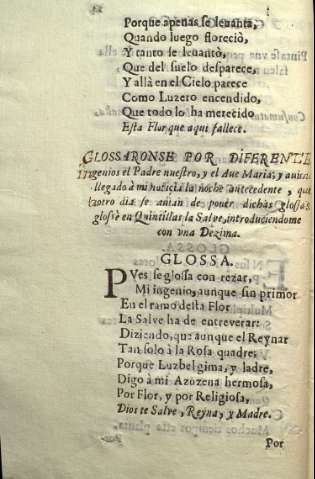 Porque apenas se leuanta,
Quando luego floreciò,
Y tanto se leuantò,
Que del suelo desparece,
Y allà en el Cielo parece
Como Luzero encendido,
Que todo lo ha merecido
Esta Flor que aqui fallece.
GLOSSARONSE POR DIFERENTE
Ingenios el Padre nuestro, y el Aue Maria, y auien
llegado à mi noticia la noche antecedente, que
otro dia se auian de poner dichas glossas,
glossè en Quintillas la Salve, introduciendome
con vna Dezima.
GLOSSA.
PVes se glossa con rezar,
Mi ingenio, aunque sin primor
En el ramo desta Flor
La Salve ha de entreverar:
Diziendo, que aunque el Reynar
Tan solo à la Rosa quadre,
Porque Luzbel gima, y ladre,
Digo à mi Azozena hermosa,
Por Flor, y por Religiosa,
Dios te Salve, Reyna, y Madre.
Por